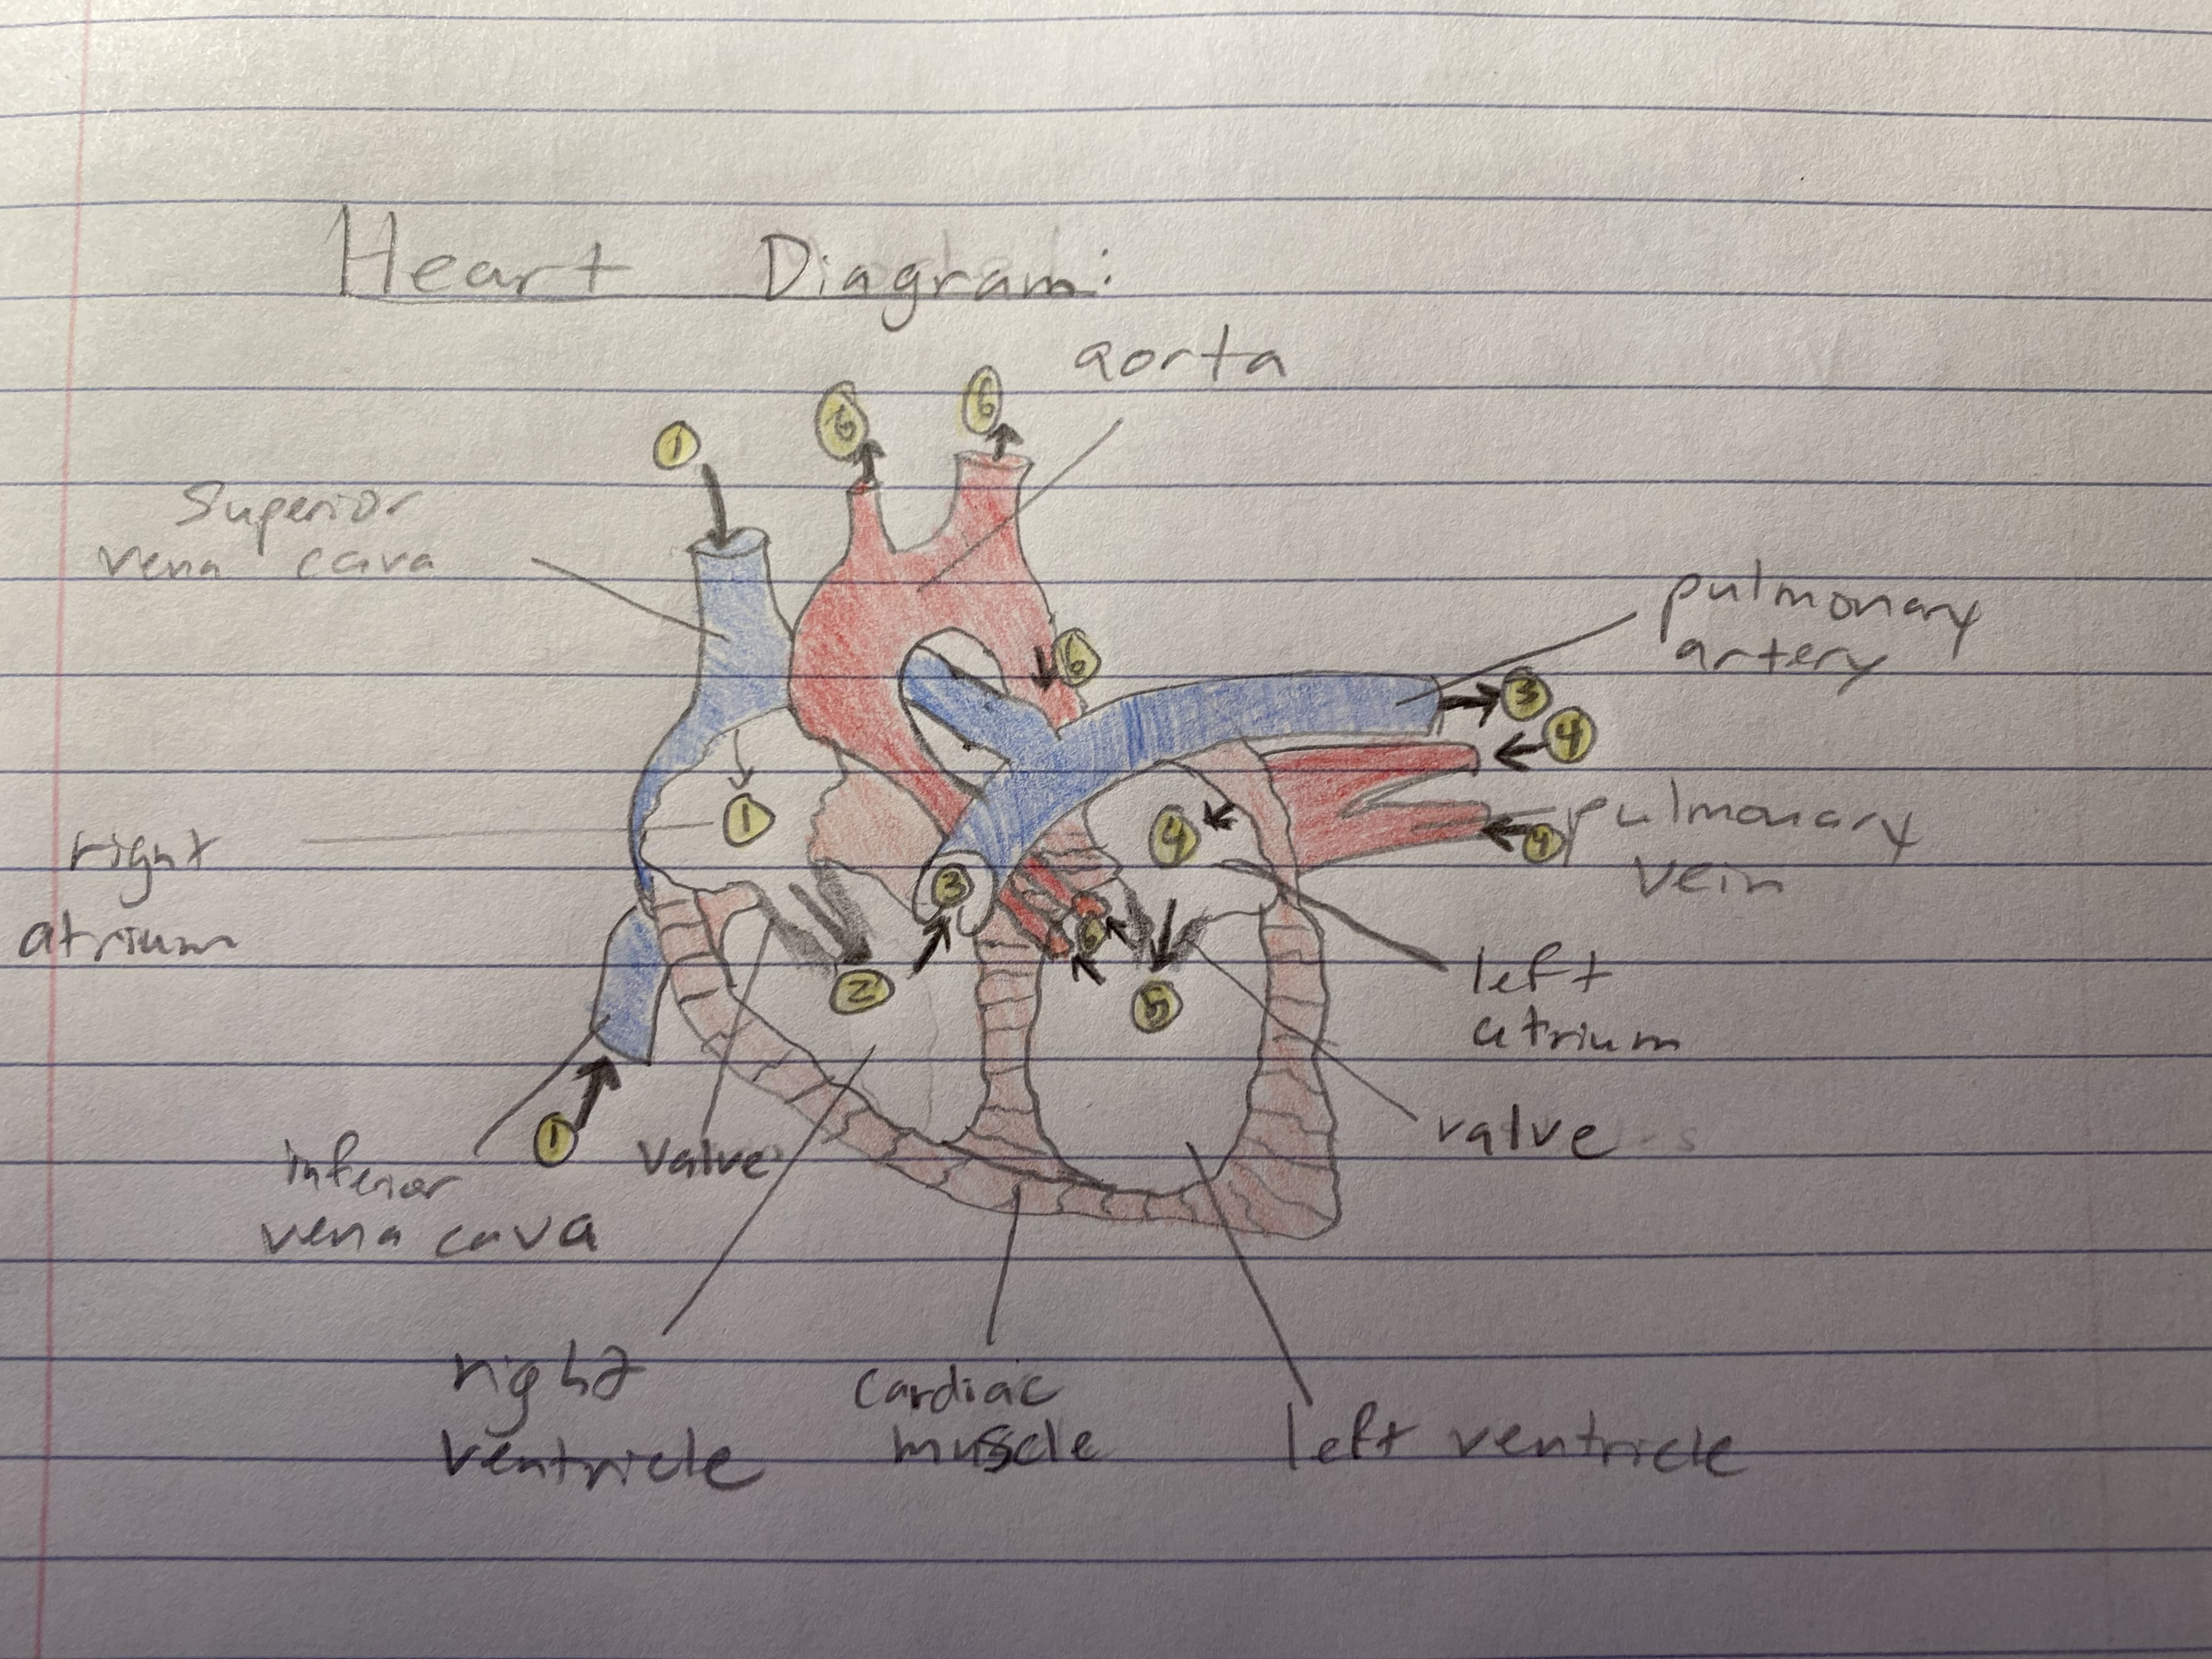 Heart Diagram:
aorta
6
6
1
Superior
vena cava
pulmonary
artery
6
3
4
1
4
pulmonary
vein
4
right
atrium
3
6
2
5
left
atrium
1
valve
valve
inferior
vena cava
right
ventricle
cardiac
muscle
left ventricle